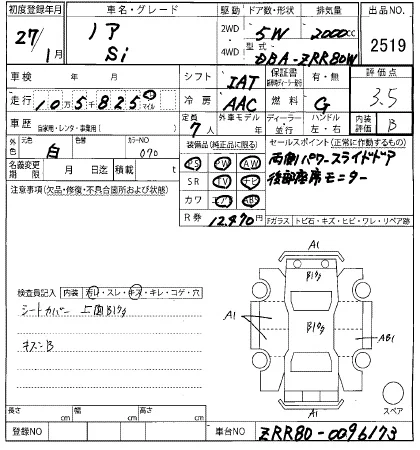 初度登録年月 車名・グレード 駆動 ドア数・形状 排気量 出品NO.
27/1月 ノア Si 2WD・4WD 5W 2000cc 2519
型式 DBA-ZRR80W
車検 年 月 シフト IAT 保証書 有・無 評価点
走行 10万5千825 km マイル 冷房 AAC 燃料 G 3.5
車歴 自家用・レンタ・事業用( ) 定員 7人 外車モデル 年 ディーラー・並行 ハンドル 左・右 内装評価 B
外色 元色 白 カラーNO 070 装備品(純正品に限る) セールスポイント(正常に作動するもの)
名義変更期限 月 日迄 積載 t PS PW AW 両側パワースライドドア
注意事項(欠品・修復・不具合箇所および状態) SR TV ナビ 後部座席モニター
カワ エアB ABS
R券 12,470円 Fガラス トビ石・キズ・ヒビ・ワレ・リペア跡
検査員記入 内装 汚レ・スレ・キズ・キレ・コゲ・穴
シートカバー 上面Blク
キズンB
A1
Blク
A1
Blク
AB1
A1
スペア
長さ cm 幅 cm 高さ cm
登録NO 車台NO ZRR80-0096173